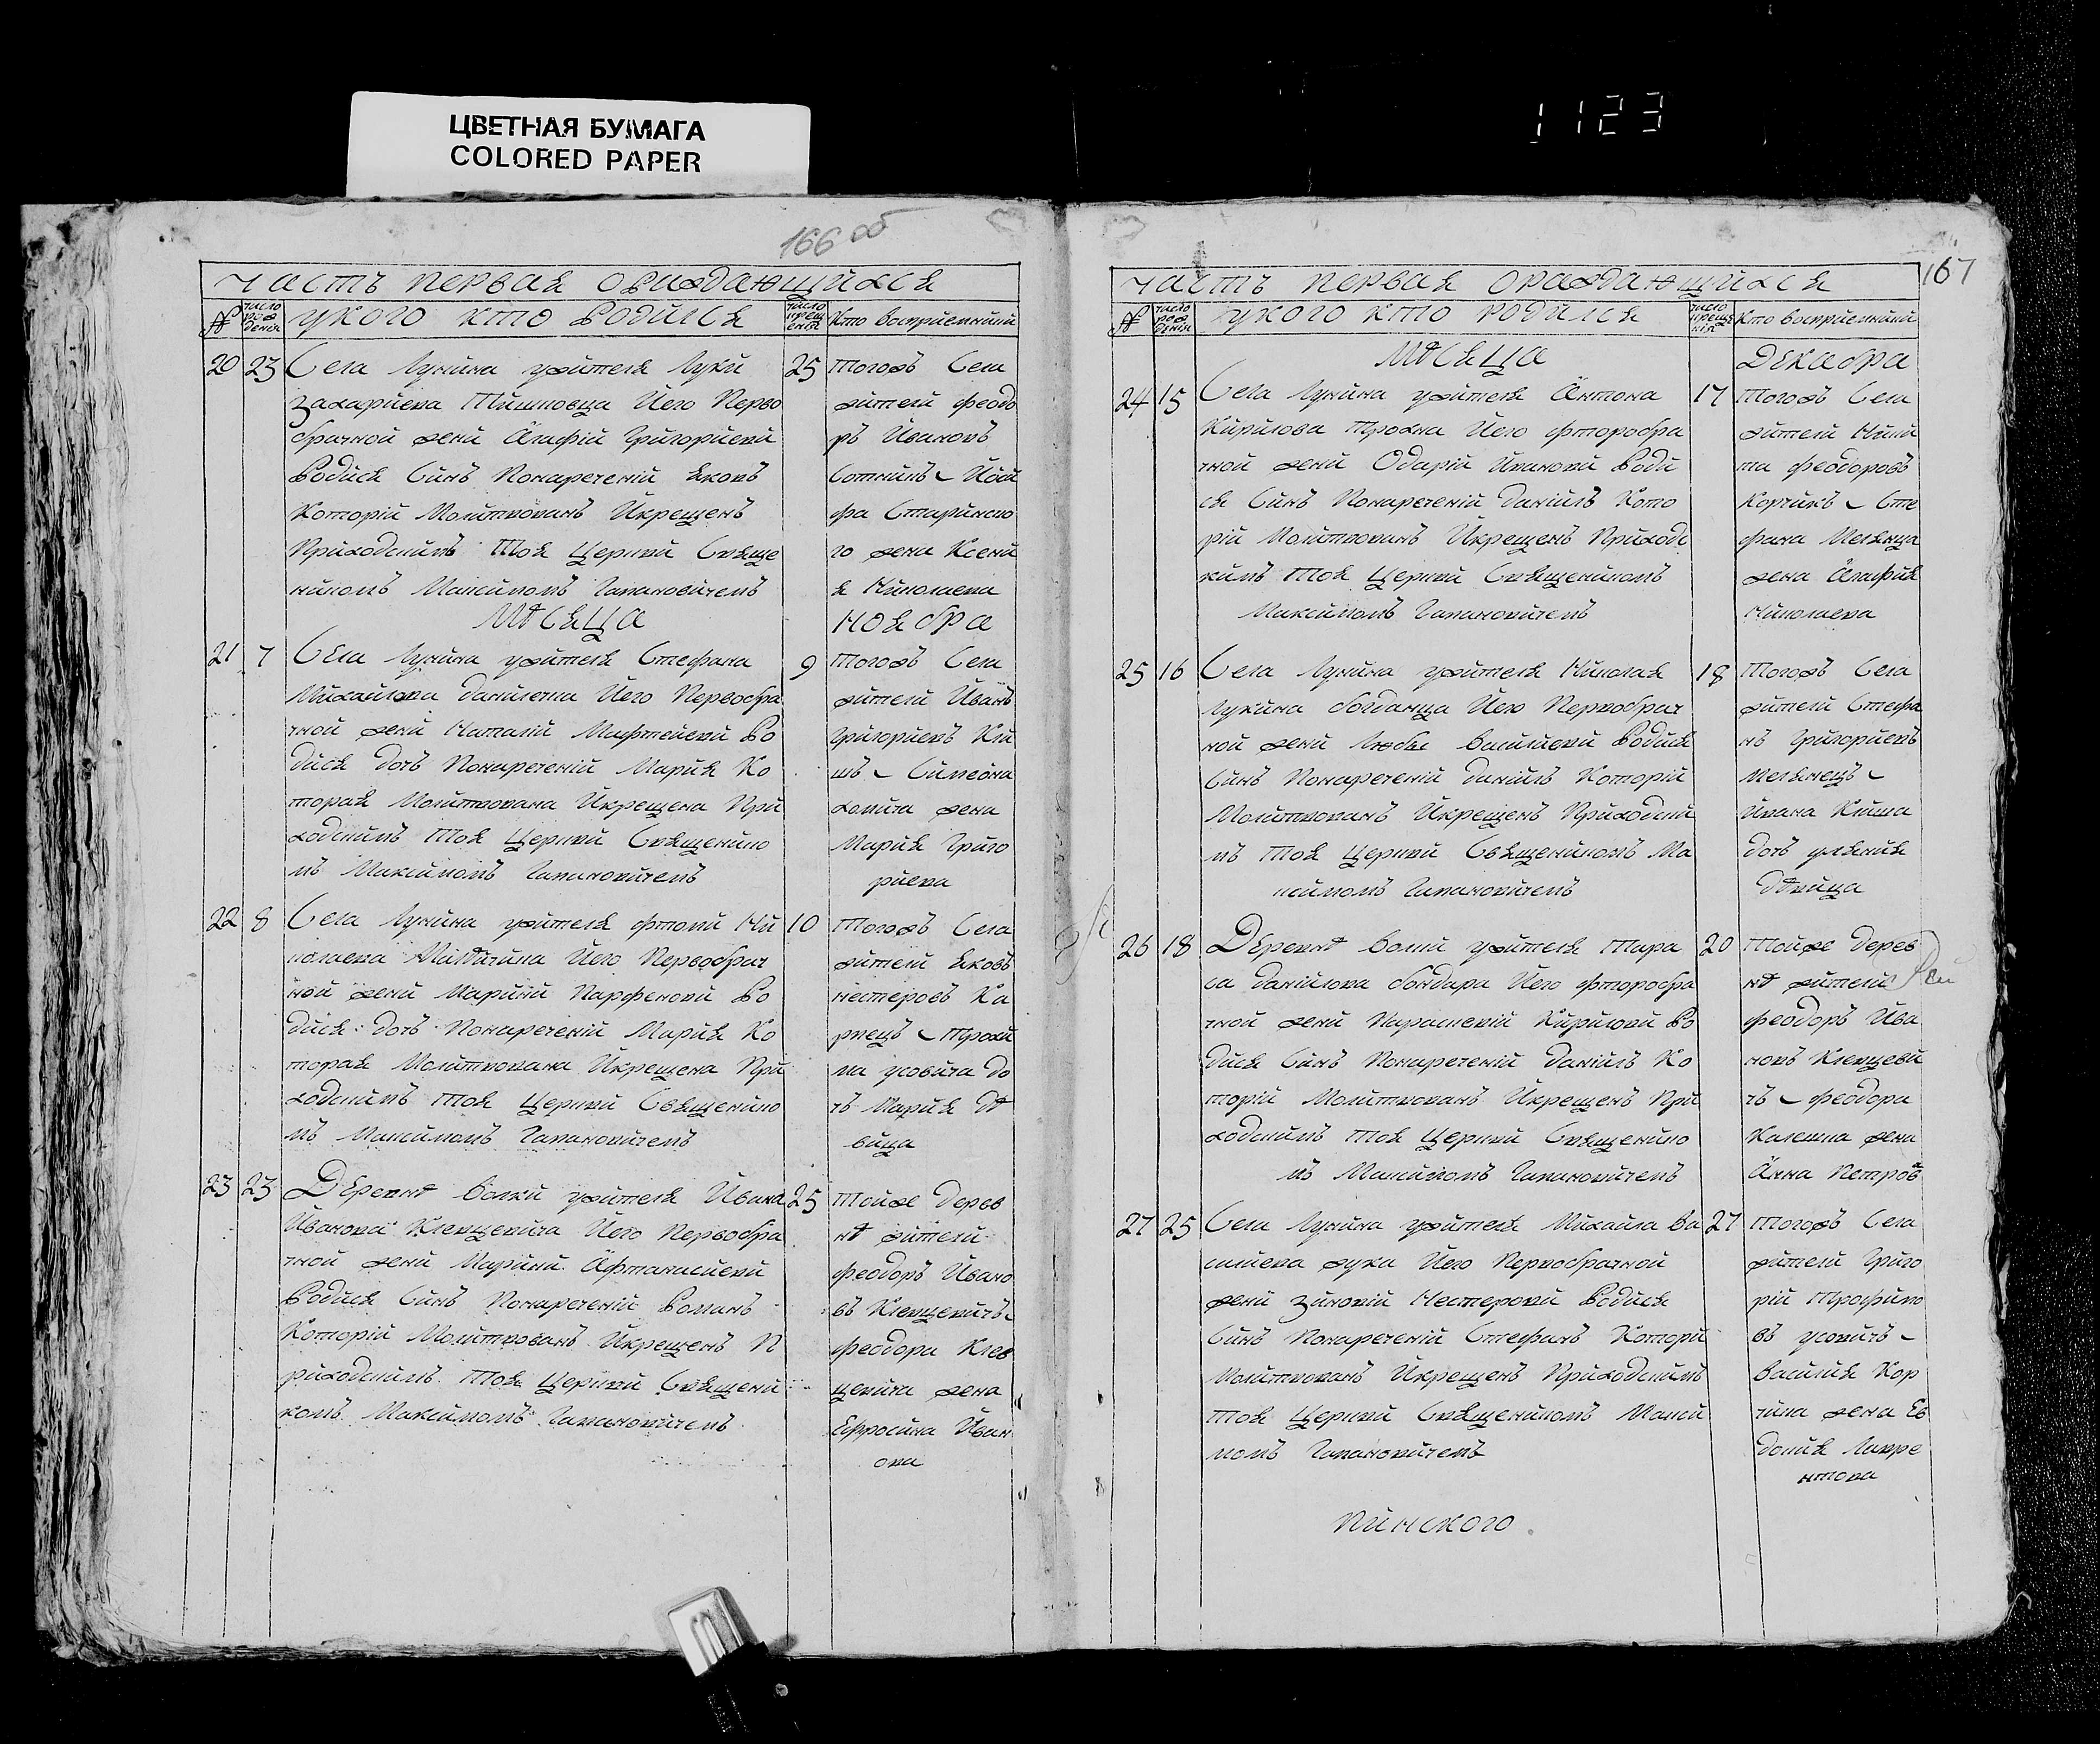 ЦВЕТНАЯ БУМАГА
COLORED PAPER
1123
166 об
часть первая ораждающийхся
№
число рождения
укого кто родился
число крещения
кто восприемники
20 23 Села Лунина жителя Луки
Захариева Его перво
брачной жени Агафий Григориевй
Родися Синъ Понареченїй Яковъ
Которїй Молитвованъ Икрещенъ
Приходскимъ Тоя Церкви Свяще
никомъ Максимомъ Гапановичемъ
25 Тогожъ Села
житель Феодо
ръ Ивановъ
Сотникъ – Иоси
фа Старинско
го жена Ксени
я Николаева
Мѣсяца Ноября
21 7 Села Лунина жителя Стефана
Михайлова Данилечка Его Первобра
чной жени Наталїй Мафтейевй Ро
дися дочъ Понареченїй Мария Ко
торая Молитвована Икрещена При
ходскимъ Тоя Церкви Священико
мъ Максимомъ Гапановичемъ
9 Тогожъ Села
житель Иванъ
Григориевъ Кли
шъ – Симеона
Хомича жена
Мария Григо
риева
22 8 Села Лунина жителя Фтомй Ни
колаева Его Первобрач
ной жени Маринй Парфеновй Ро
дися дочъ Понареченїй Мария Ко
торая Молитвована Икрещена При
ходскимъ Тоя Церкви Священико
мъ Максимомъ Гапановичемъ
10 Тогожъ Села
житель Яковъ
Нестеровъ Ка
рпецъ – Трохи
ма Усовича до
чъ Мария дѣ
вица
23 23 Деревнѣ Волки жителя Ивана
Иванова Клевцевича Его Первобра
чной жени Маринй Афтанасиевй
Родися Синъ Понареченїй Романъ
Которїй Молитвованъ Икрещенъ П
риходскимъ Тоя Церкви Священи
комъ Максимомъ Гапановичемъ
25 Тойже Дерев
нѣ житель
Феодоръ Ивано
въ Клевцевичъ –
Феодора Клев
цевича жена
Ефросина Иван
ова
167
часть первая ораждающийхся
№
число рождения
укого кто родился
число крещения
кто восприемники
Мѣсяца Декабря
24 15 Села Лунина жителя Антона
Кирилова Его Фторобра
чной жени Одарїй Ивановй Роди
ся Синъ Понареченїй Данїилъ Кото
рїй Молитвованъ Икрещенъ Приходс
кимъ Тоя Церкви Священикомъ
Максимомъ Гапановичемъ
17 Тогожъ Села
житель Ники
та Феодоровъ
Корчикъ – Сте
фана Мелянца
жена Агафия
Николаева
25 16 Села Лунина жителя Николая
Лукина Богданца Его Первобрач
ной жени Любы Василиевй Родися
Синъ Понареченїй Данїилъ Которїй
Молитвованъ Икрещенъ Приходски
мъ Тоя Церкви Священикомъ Ма
ксимомъ Гапановичемъ
18 Тогожъ Села
житель Стефа
нъ Григориевъ
Мелянецъ –
Ивана Клиша
дочъ Уляния
дѣвица
26 18 Деревнѣ Волки жителя Тара
са Данилова Бондара Его Фторобра
чной жени Параскевїй Кириловй Ро
дися Синъ Понареченїй Данїилъ Ко
торїй Молитвованъ Икрещенъ При
ходскимъ Тоя Церкви Священико
мъ Максимомъ Гапановичемъ
20 Тойже Дерев
нѣ житель
Феодоръ Ива
новъ Клевцеви
чъ – Феодора
жена
Анна Петрова
27 25 Села Лунина жителя Михаила Ва
силиева Жука Его Первобрачной
жени Зиновїй Нестеровй Родися
Синъ Понареченїй Стефанъ Которїй
Молитвованъ Икрещенъ Приходскимъ
Тоя Церкви Священикомъ Макси
момъ Гапановичемъ
27 Тогожъ Села
житель Григо
рїй Трофимо
въ Усовичъ –
Василия Кор
чика жена Ев
докия Лавре
нтова
Пинского